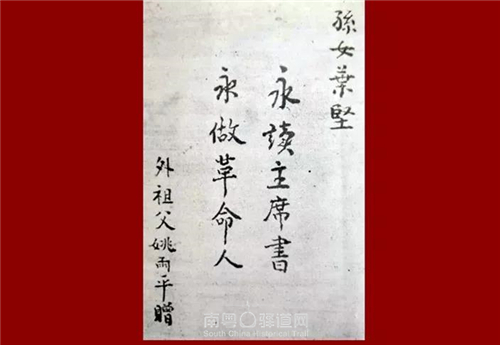 孫女葉堅
永讀主席書
永做革命人
外祖父姚雨平贈
南粤驿道网
South China Historical Trail